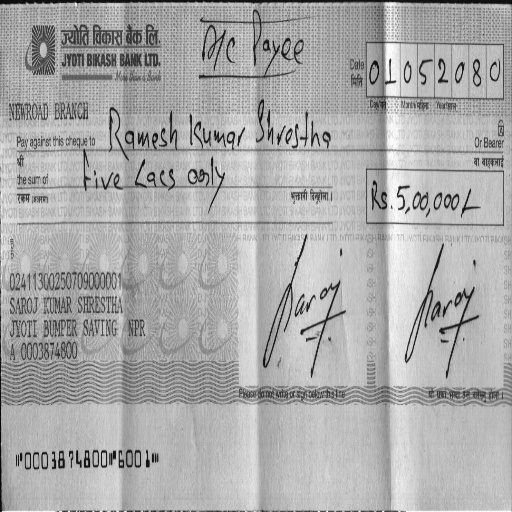 ज्योति विकास बैंक लि.
JYOTI BIKASH BANK LTD.
A/c Payee
Date
मिति
01052080
NEWROAD BRANCH
Pay against this cheque to Ramesh Kumar Shrestha
श्री
Or Bearer
वा वाहकलाई
the sum of Five Lacs only
रकम (अक्षरमा)
Rs. 5,00,000/-
02411300250709000001
SAROJ KUMAR SHRESTHA
JYOTI BUMPER SAVING NPR
A 0003874800
Saroj
Saroj
Please do not write or sign below this line
"0003874800" 6001"